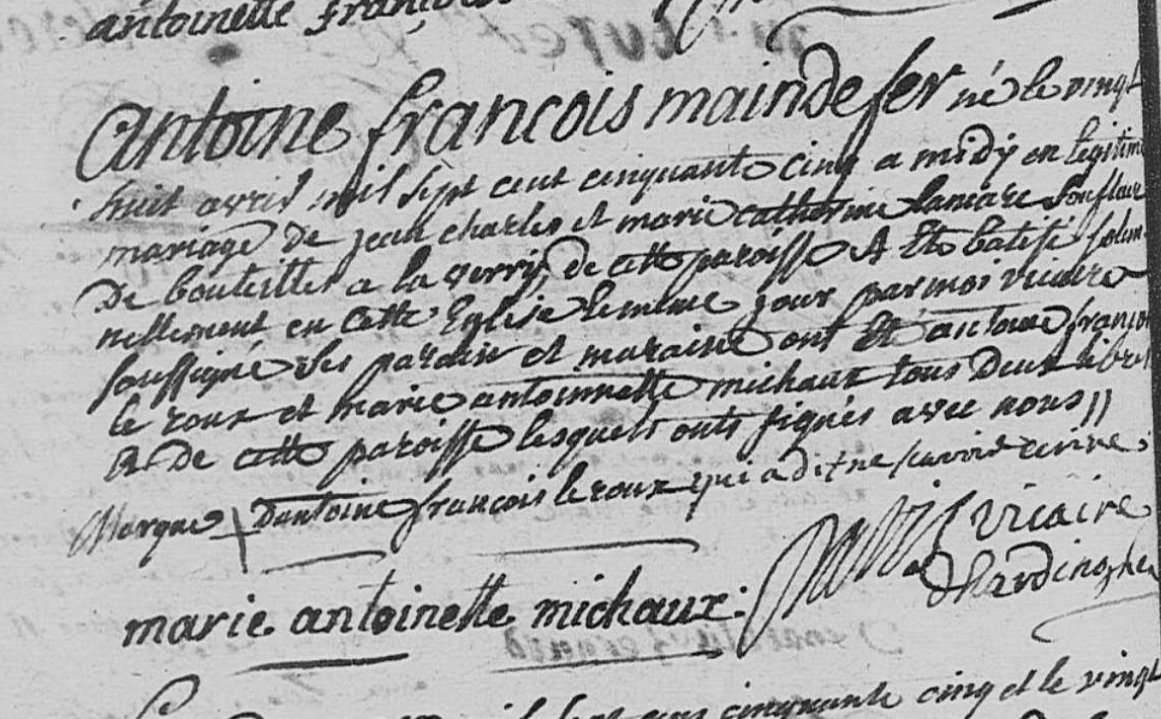 antoinette françois
antoine françois maindefer né le vingt
huit avril mil sept cent cinquante cinq a midÿ en legitime
mariage de jean charles et marie catherine lamare soufleur
de bouteilles a la verrÿ de cette paroisse A Eté batisé solem
nellement en cette Eglise le meme jour par moi vicaire
soussigné ses parain et maraine ont Eté antoine françois
le roux et marie antoinnette michaux tous deux libres
& de cette paroisse lesquels onts signés avec nous //
Marque + Dantoine françois leroux qui a dit ne scavoir ecrire
vicaire
Dhardinghen
marie antoinette michaux
cinquante cinq et le vingt